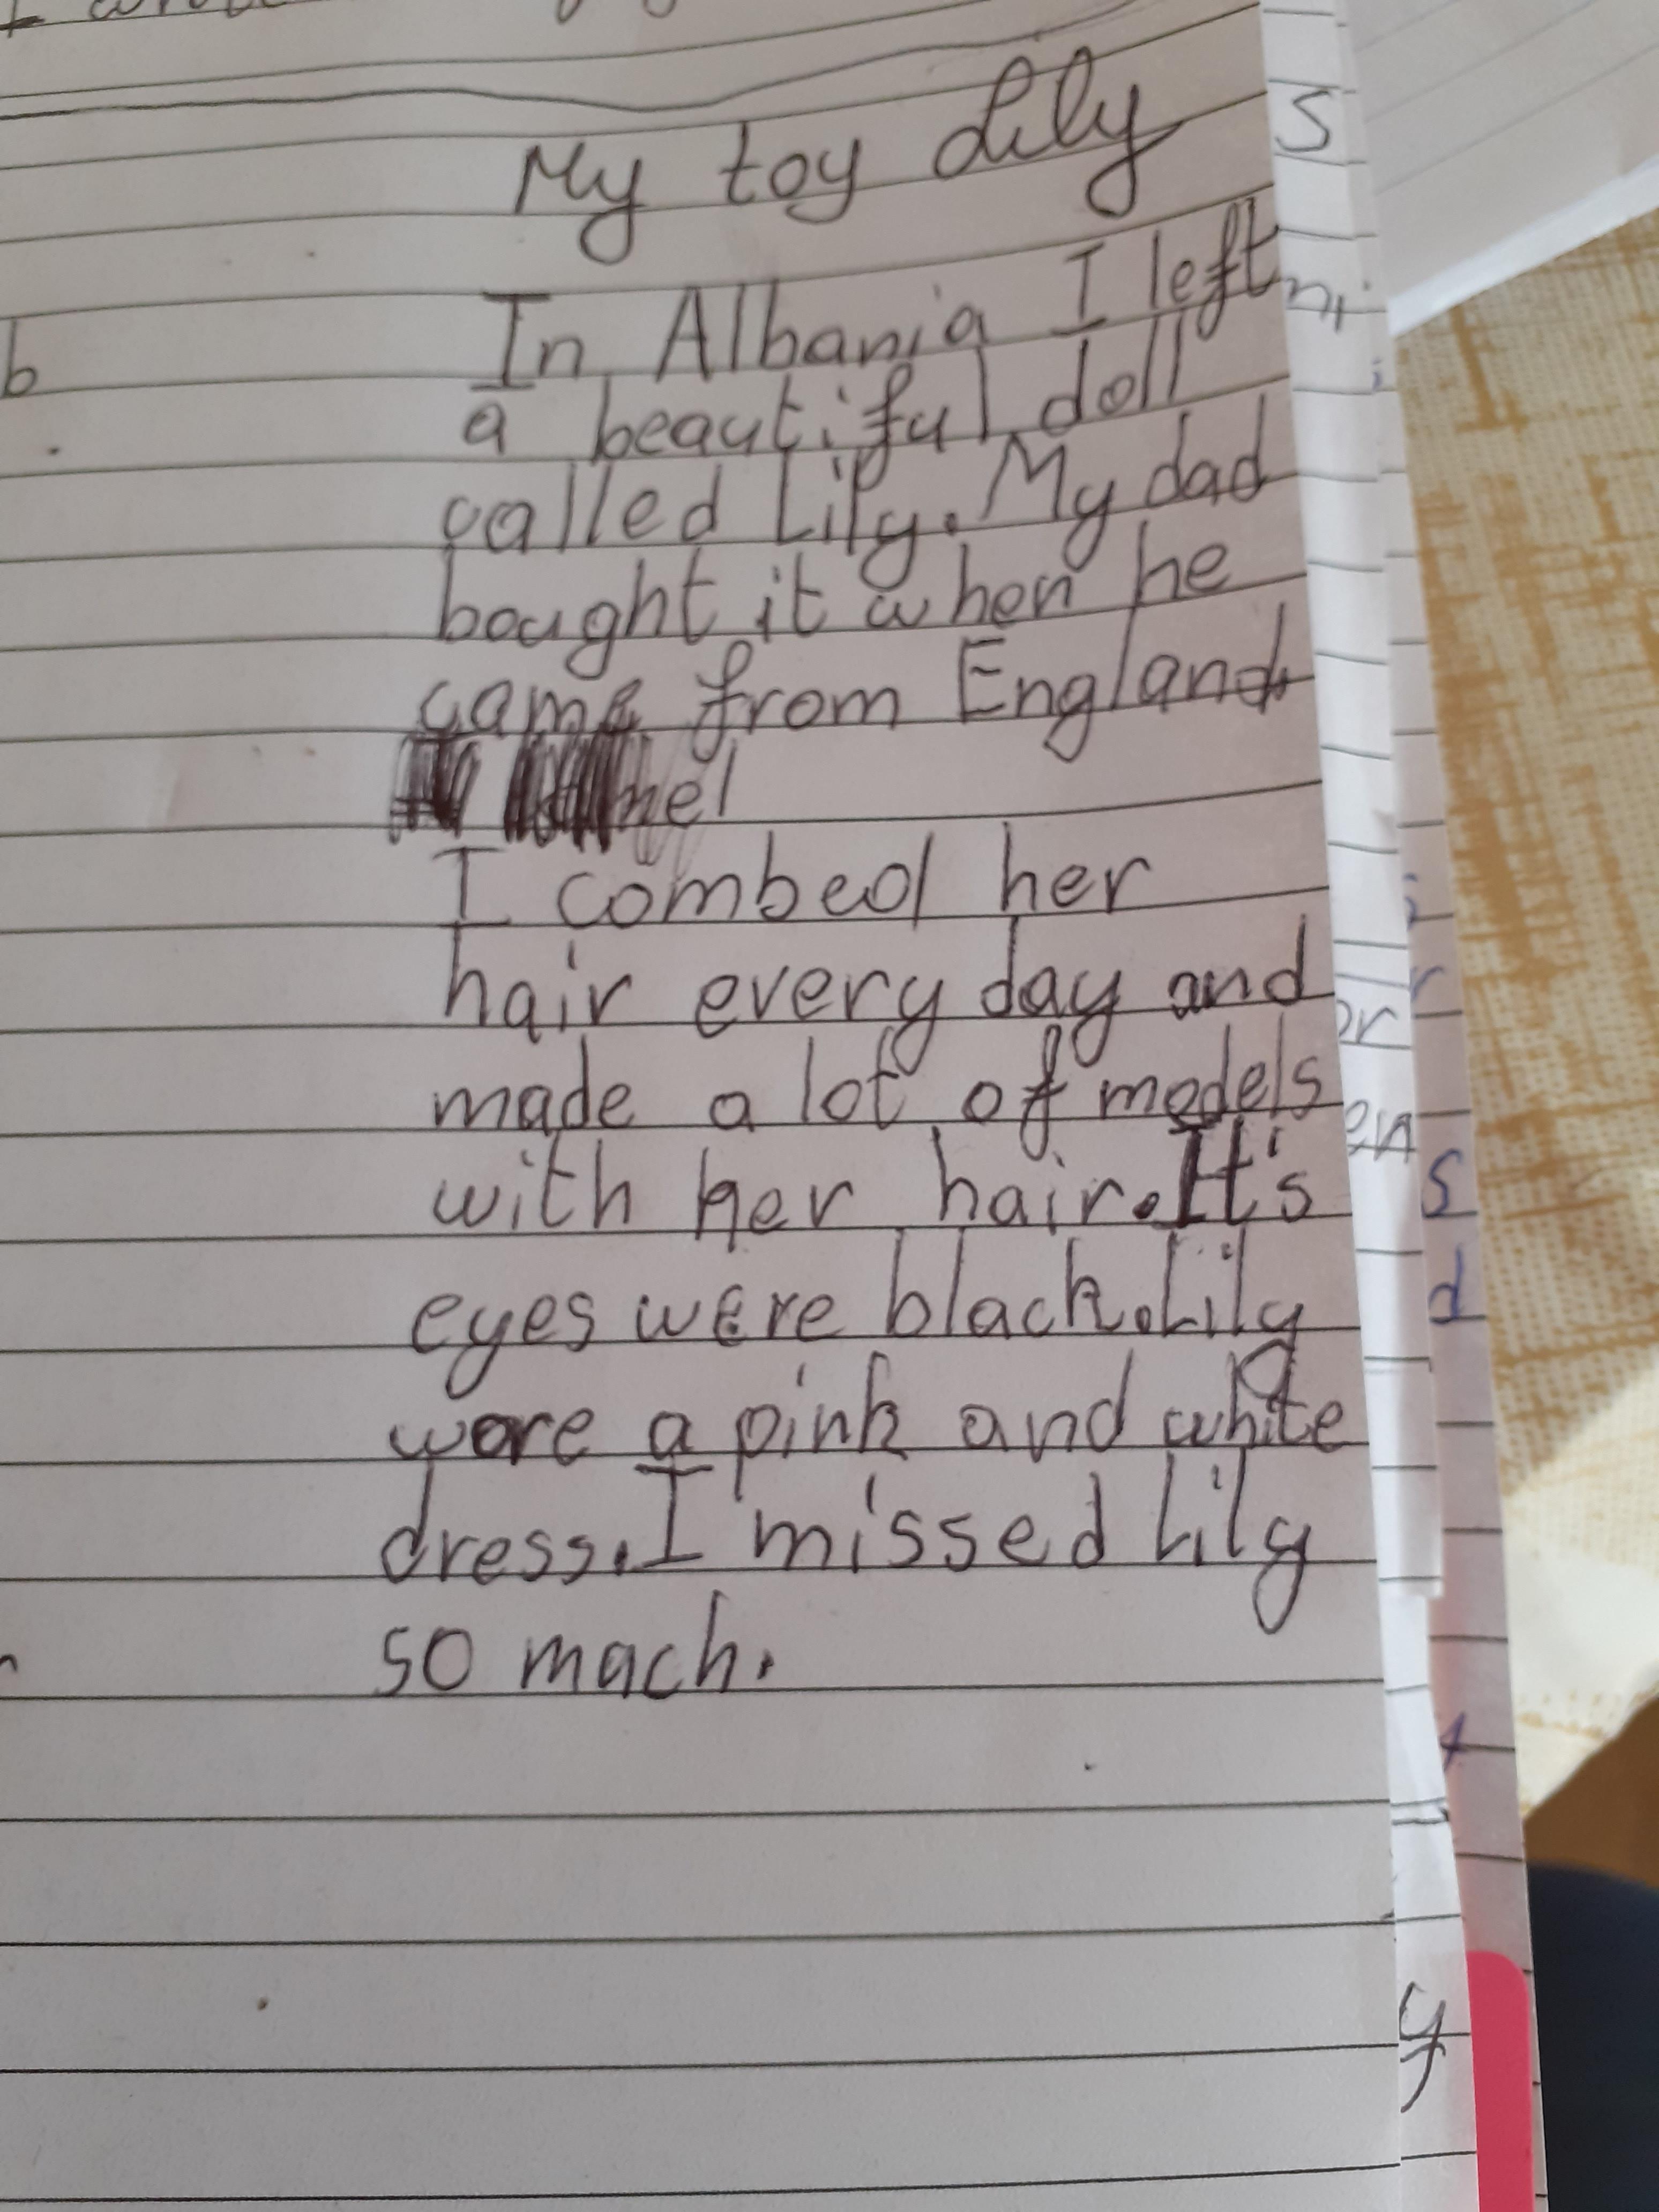 My toy Lily
In Albania I left
a beautiful doll
called Lily. My dad
bought it when he
came from England.
I combed her
hair every day and
made a lot of models
with her hair. It's
eyes were black. Lily
wore a pink and white
dress. I missed Lily
so mach.